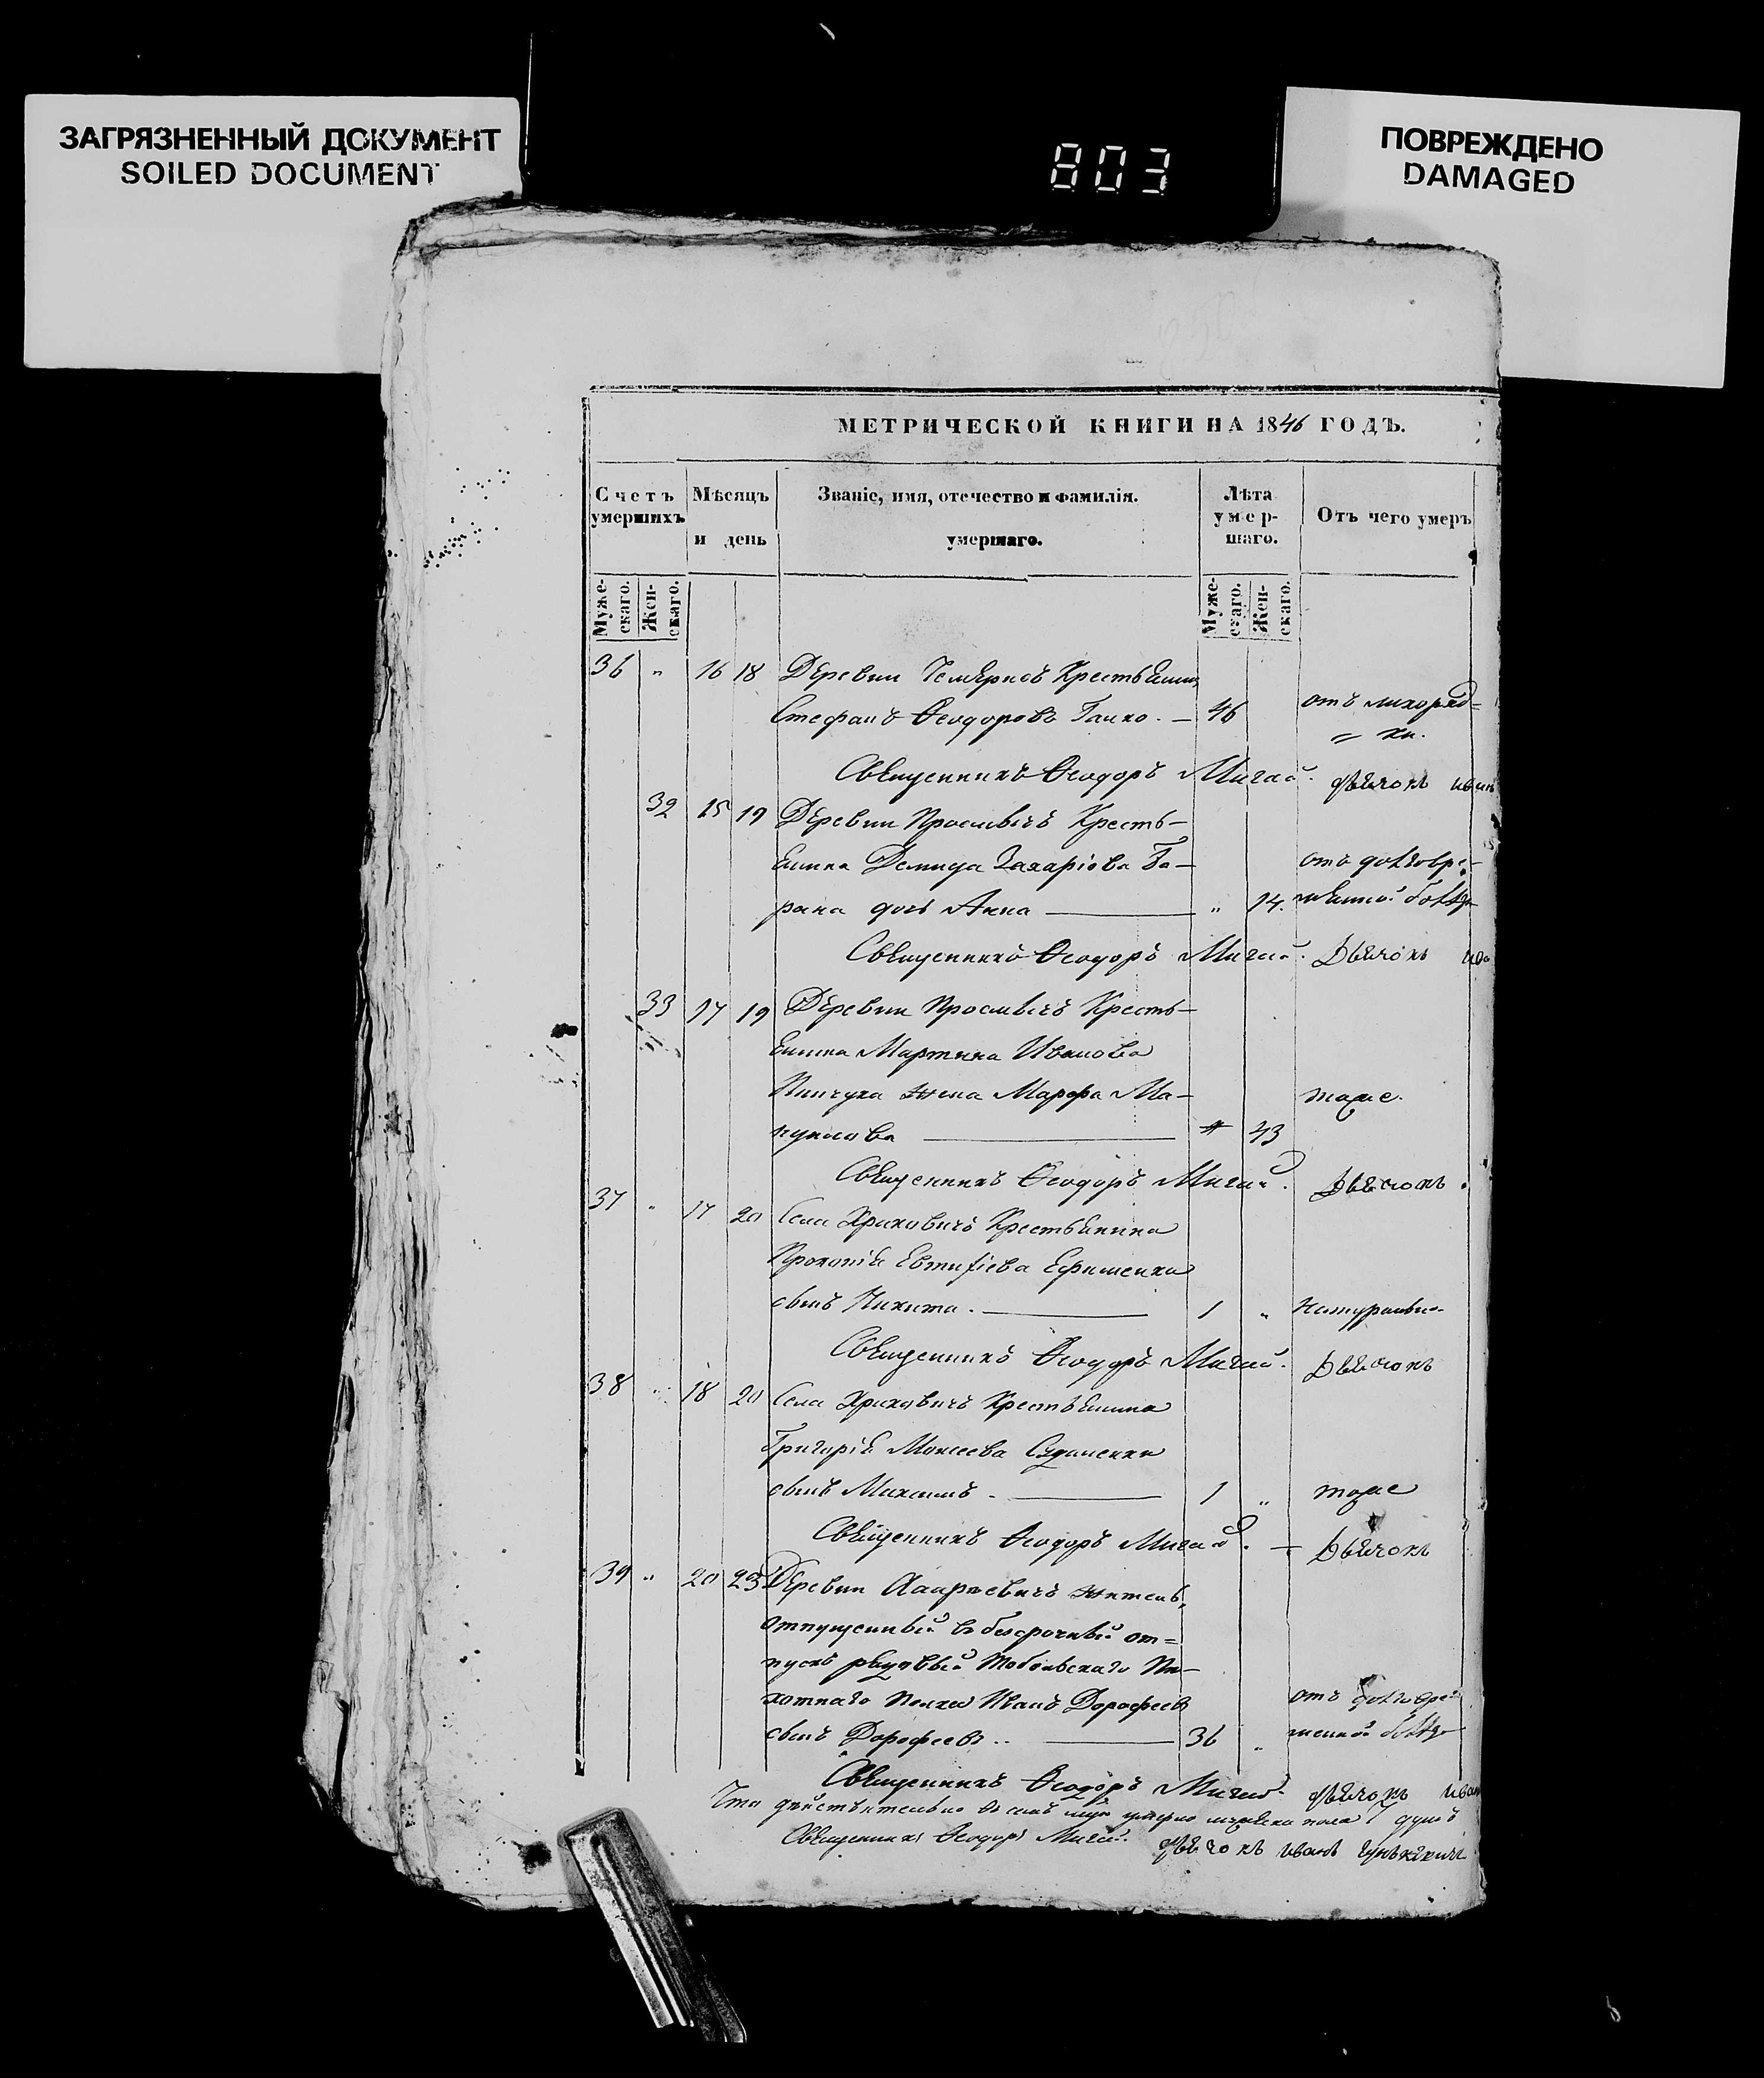 ЗАГРЯЗНЕННЫЙ ДОКУМЕНТ
SOILED DOCUMENT
803
ПОВРЕЖДЕНО
DAMAGED
МЕТРИЧЕСКОЙ КНИГИ НА 1846 ГОДЪ.
Счетъ умершихъ
Мѣсяцъ и день
Званіе, имя, отечество и фамилія. умершаго.
Лѣта умер-шаго.
Отъ чего умеръ
Муже-скаго. Жен-скаго.
Муже-скаго. Жен-скаго.
36 " 16 18 Деревни Крестьянинъ
Стефанъ Ѳеодоровъ Ганко. — 46 отъ лихорад=
= ки.
Священникъ Ѳеодоръ Мигай. дьячокъ Иванъ
32 15 19 Деревни Кресть-
янина Демида Захаріева Ба-
рана дочь Анна — " 14. отъ долговре-
менной болѣз
Священникъ Ѳеодоръ Мигай. Дьячокъ Ива
33 17 19 Деревни Кресть-
янина Мартина Иванова
Пинчука жена Марфа Ма-
— " 43 тоже.
Священникъ Ѳеодоръ Мигай. Дьячокъ
37 " 17 20 Села Храковичъ Крестьянина
Прокопія Евтихіева Ефименка
сынъ Никита. — 1 " Натурально
Священникъ Ѳеодоръ Мигай. Дьячокъ
38 " 18 20 Села Храковичъ Крестьянина
Григорія Моисеева
сынъ Максимъ — 1 " тоже
Священникъ Ѳеодоръ Мигай. — Дьячокъ
39 " 20 23 Деревни житель,
отпущенный въ безсрочный от=
пускъ рядовый Тобольскаго Пѣ-
хотнаго Полка Иванъ Дорофеевъ
сынъ Дорофеевъ .. — 36 " отъ долговре=
менной болѣз
Священникъ Ѳеодоръ Мигай. дьячокъ Иван
Что дѣйствительно въ семъ умерло мужеска пола 7 душъ
Священникъ Ѳеодоръ Мигай. дьячокъ Иванъ